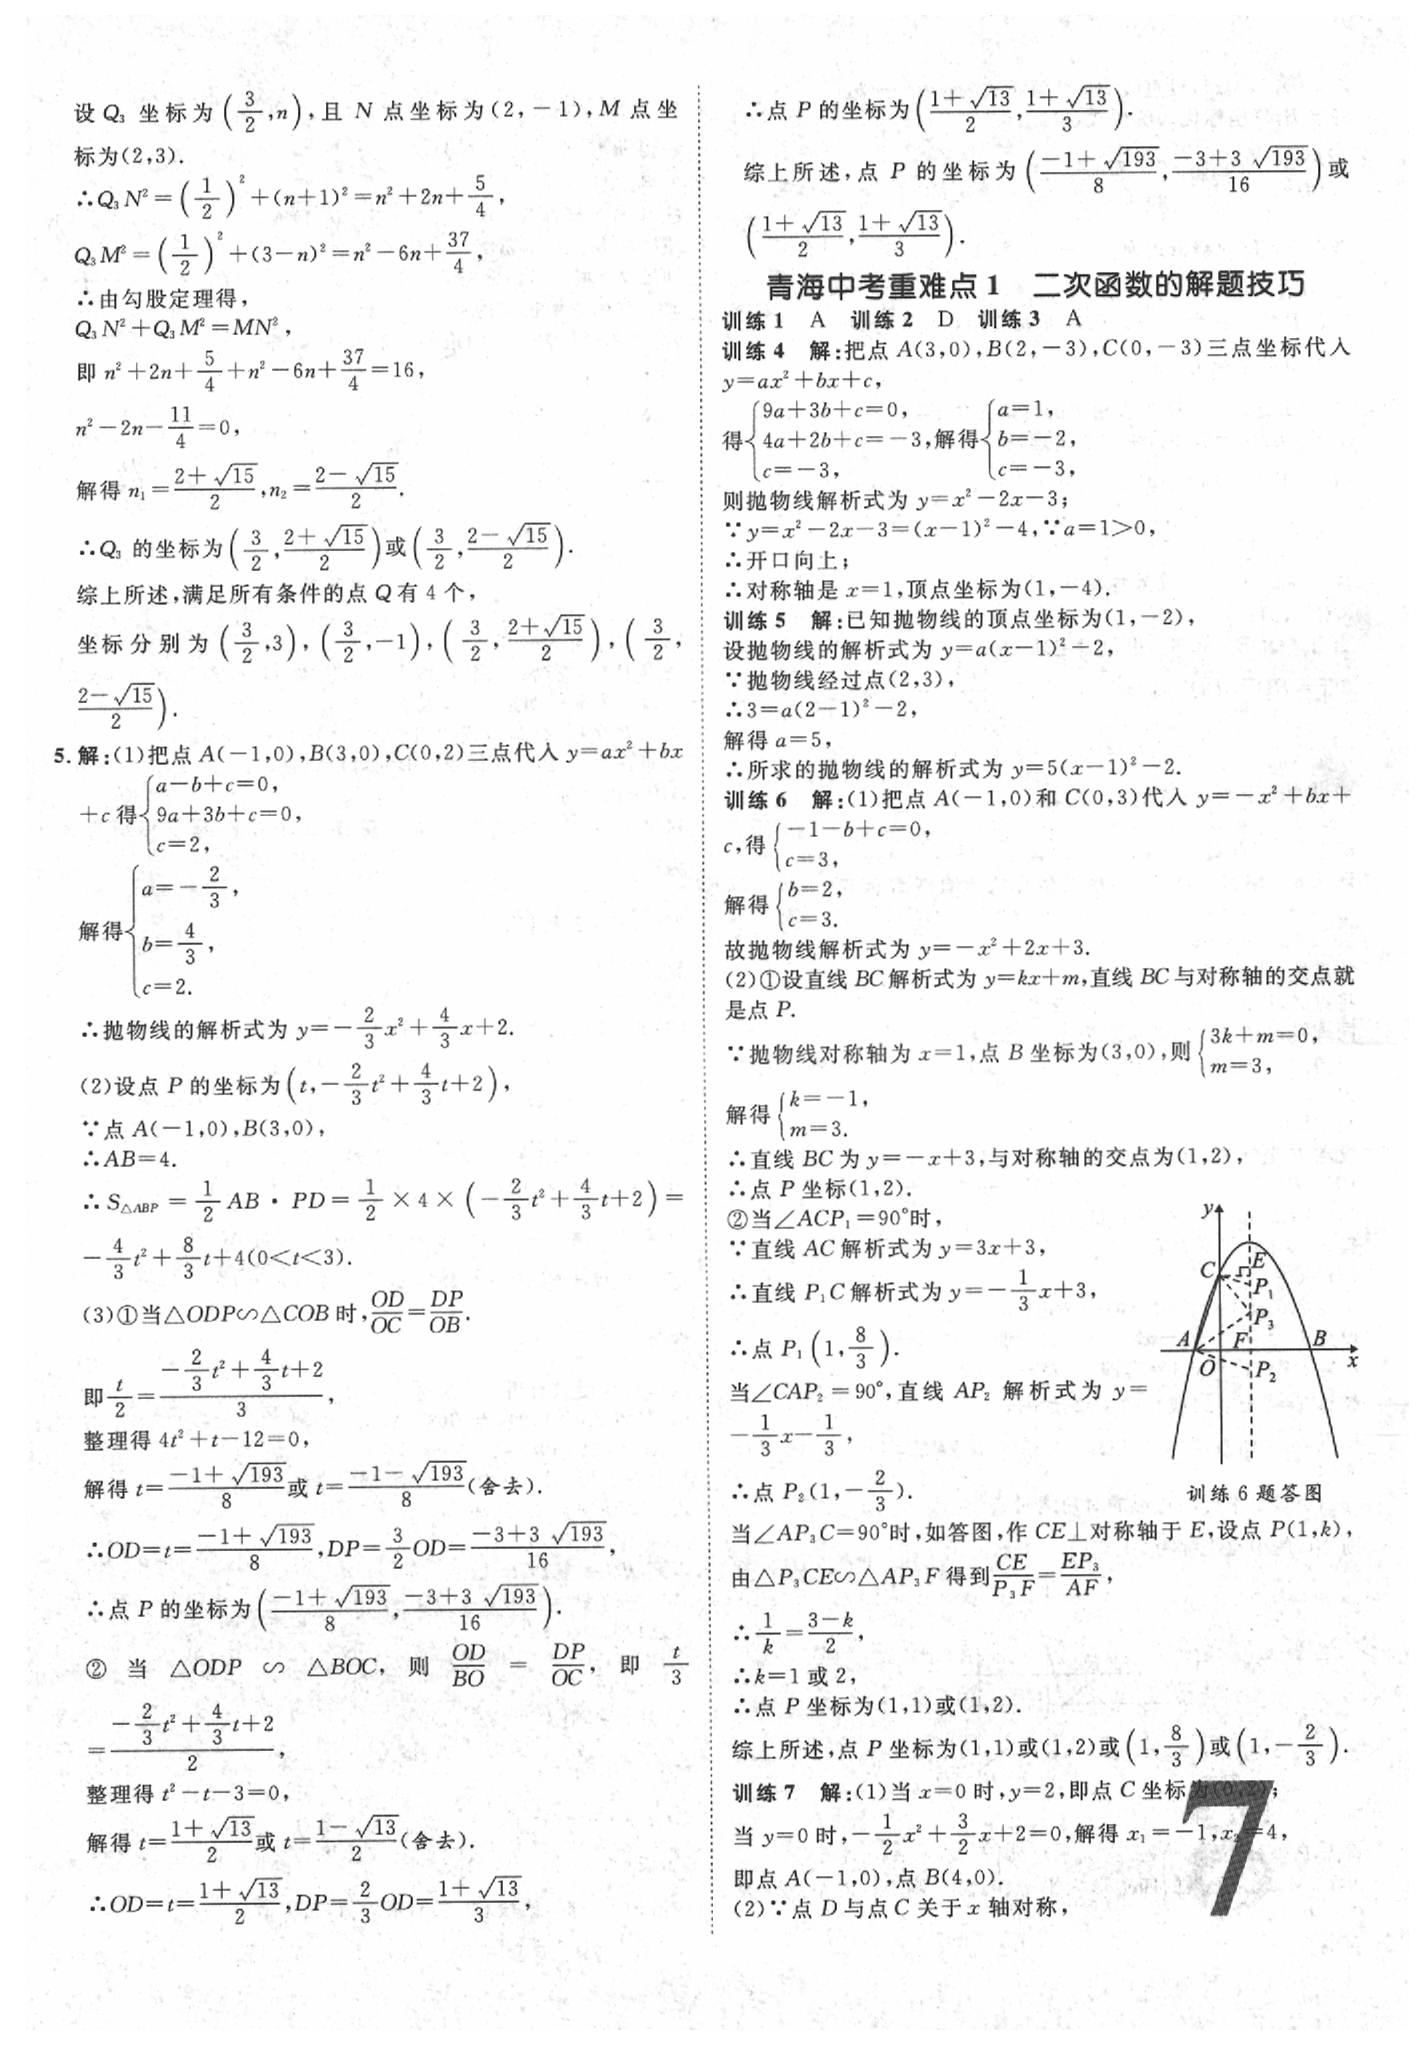 设 Q₃ 坐标为(3/2,n),且 N 点坐标为(2,-1),M 点坐
标为(2,3).
∴Q₃N²=(1/2)²+(n+1)²=n²+2n+5/4,
Q₃M²=(1/2)²+(3-n)²=n²-6n+37/4,
∴由勾股定理得,
Q₃N²+Q₃M²=MN²,
即 n²+2n+5/4+n²-6n+37/4=16,
n²-2n-11/4=0,
解得 n₁=(2+√15)/2,n₂=(2-√15)/2.
∴Q₃ 的坐标为(3/2,(2+√15)/2)或(3/2,(2-√15)/2).
综上所述,满足所有条件的点 Q 有 4 个,
坐标分别为(3/2,3),(3/2,-1),(3/2,(2+√15)/2),(3/2,
(2-√15)/2).
5.解:(1)把点 A(-1,0),B(3,0),C(0,2)三点代入 y=ax²+bx
+c 得{a-b+c=0,
9a+3b+c=0,
c=2,
解得{a=-2/3,
b=4/3,
c=2.
∴抛物线的解析式为 y=-2/3x²+4/3x+2.
(2)设点 P 的坐标为(t,-2/3t²+4/3t+2),
∵点 A(-1,0),B(3,0),
∴AB=4.
∴S△ABP=1/2AB·PD=1/2×4×(-2/3t²+4/3t+2)=
-4/3t²+8/3t+4(0<t<3).
(3)①当△ODP∽△COB 时,OD/OC=DP/OB.
即 t/2=(-2/3t²+4/3t+2)/3,
整理得 4t²+t-12=0,
解得 t=(-1+√193)/8或 t=(-1-√193)/8(舍去).
∴OD=t=(-1+√193)/8,DP=3/2OD=(-3+3√193)/16,
∴点 P 的坐标为((-1+√193)/8,(-3+3√193)/16).
②当△ODP∽△BOC,则 OD/BO=DP/OC,即 t/3
=(-2/3t²+4/3t+2)/2,
整理得 t²-t-3=0,
解得 t=(1+√13)/2或 t=(1-√13)/2(舍去).
∴OD=t=(1+√13)/2,DP=2/3OD=(1+√13)/3,
∴点 P 的坐标为((1+√13)/2,(1+√13)/3).
综上所述,点 P 的坐标为((-1+√193)/8,(-3+3√193)/16)或
((1+√13)/2,(1+√13)/3).
青海中考重难点 1 二次函数的解题技巧
训练 1 A 训练 2 D 训练 3 A
训练 4 解:把点 A(3,0),B(2,-3),C(0,-3)三点坐标代入
y=ax²+bx+c,
得{9a+3b+c=0,
4a+2b+c=-3,
c=-3,
解得{a=1,
b=-2,
c=-3,
则抛物线解析式为 y=x²-2x-3;
∵y=x²-2x-3=(x-1)²-4,∵a=1>0,
∴开口向上;
∴对称轴是 x=1,顶点坐标为(1,-4).
训练 5 解:已知抛物线的顶点坐标为(1,-2),
设抛物线的解析式为 y=a(x-1)²-2,
∵抛物线经过点(2,3),
∴3=a(2-1)²-2,
解得 a=5,
∴所求的抛物线的解析式为 y=5(x-1)²-2.
训练 6 解:(1)把点 A(-1,0)和 C(0,3)代入 y=-x²+bx+
c,得{-1-b+c=0,
c=3,
解得{b=2,
c=3.
故抛物线解析式为 y=-x²+2x+3.
(2)①设直线 BC 解析式为 y=kx+m,直线 BC 与对称轴的交点就
是点 P.
∵抛物线对称轴为 x=1,点 B 坐标为(3,0),则{3k+m=0,
m=3,
解得{k=-1,
m=3.
∴直线 BC 为 y=-x+3,与对称轴的交点为(1,2),
∴点 P 坐标(1,2).
②当∠ACP₁=90°时,
∵直线 AC 解析式为 y=3x+3,
∴直线 P₁C 解析式为 y=-1/3x+3,
∴点 P₁(1,8/3).
当∠CAP₂=90°,直线 AP₂ 解析式为 y=
-1/3x-1/3,
∴点 P₂(1,-2/3).
y
C
E
P₁
P₃
A
F
B
O
P₂
x
训练 6 题答图
当∠AP₃C=90°时,如答图,作 CE⊥对称轴于 E,设点 P(1,k),
由△P₃CE∽△AP₃F 得到 CE/P₃F=EP₃/AF,
∴1/k=(3-k)/2,
∴k=1 或 2,
∴点 P 坐标为(1,1)或(1,2).
综上所述,点 P 坐标为(1,1)或(1,2)或(1,8/3)或(1,-2/3).
训练 7 解:(1)当 x=0 时,y=2,即点 C 坐标为(0,2);
当 y=0 时,-1/2x²+3/2x+2=0,解得 x₁=-1,x₂=4,
即点 A(-1,0),点 B(4,0).
(2)∵点 D 与点 C 关于 x 轴对称,
7